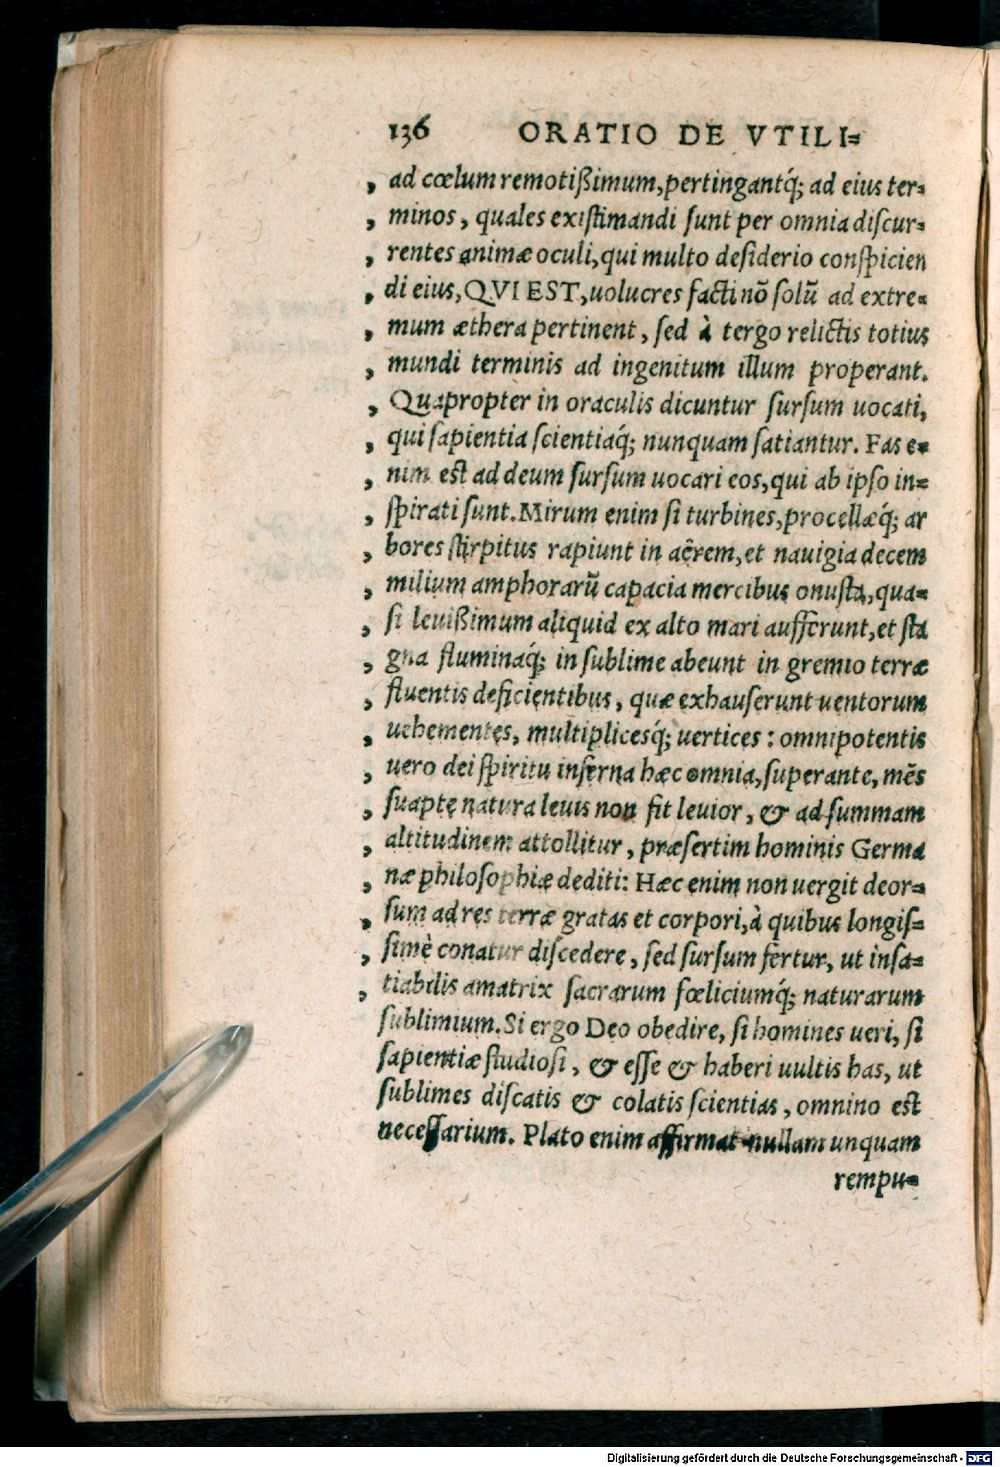 136 ORATIO DE VTILI⸗
, ad cœlum remotißimum, pertingantq́; ad eius ter⸗
, minos, quales exiſtimandi ſunt per omnia diſcur⸗
, rentes animæ oculi, qui multo deſiderio conſpicien
, di eius, QVI EST, uolucres facti nō ſolũ ad extre⸗
, mum æthera pertinent, ſed à tergo relictis totius
, mundi terminis ad ingenitum illum properant.
, Quapropter in oraculis dicuntur ſurſum uocati,
, qui ſapientia ſcientiaq́; nunquam ſatiantur. Fas e⸗
, nim est ad deum ſurſum uocari eos, qui ab ipſo in⸗
, ſpirati ſunt. Mirum enim ſi turbines, procellæq́; ar
, bores ſtirpitus rapiunt in aêrem, et nauigia decem
, milium amphorarũ capacia mercibus onuſta, qua⸗
, ſi leuißimum aliquid ex alto mari aufferunt, et ſta
, gna fluminaq́; in ſublime abeunt in gremio terræ
, fluentis deficientibus, quæ exhauſerunt uentorum
, uehementes, multiplicesq́; uertices : omnipotentis
, uero dei ſpiritu inferna hæc omnia, ſuperante, mẽs
, ſuapte natura leuis non fit leuior, & ad ſummam
, altitudinem attollitur, præſertim hominis Germa
, næ philoſophiæ dediti: Hæc enim non uergit deor⸗
, ſum ad res terræ gratas et corpori, à quibus longiſ⸗
, ſimè conatur diſcedere, ſed ſurſum fertur, ut inſa⸗
, tiabilis amatrix ſacrarum fœliciumq́; naturarum
ſublimium. Si ergo Deo obedire, ſi homines ueri, ſi
ſapientiæ ſtudioſi, & eſſe & haberi uultis has, ut
ſublimes diſcatis & colatis ſcientias, omnino est
neceſſarium. Plato enim affirmat nullam unquam
rempu⸗
Digitalisierung gefördert durch die Deutsche Forschungsgemeinschaft - DFG